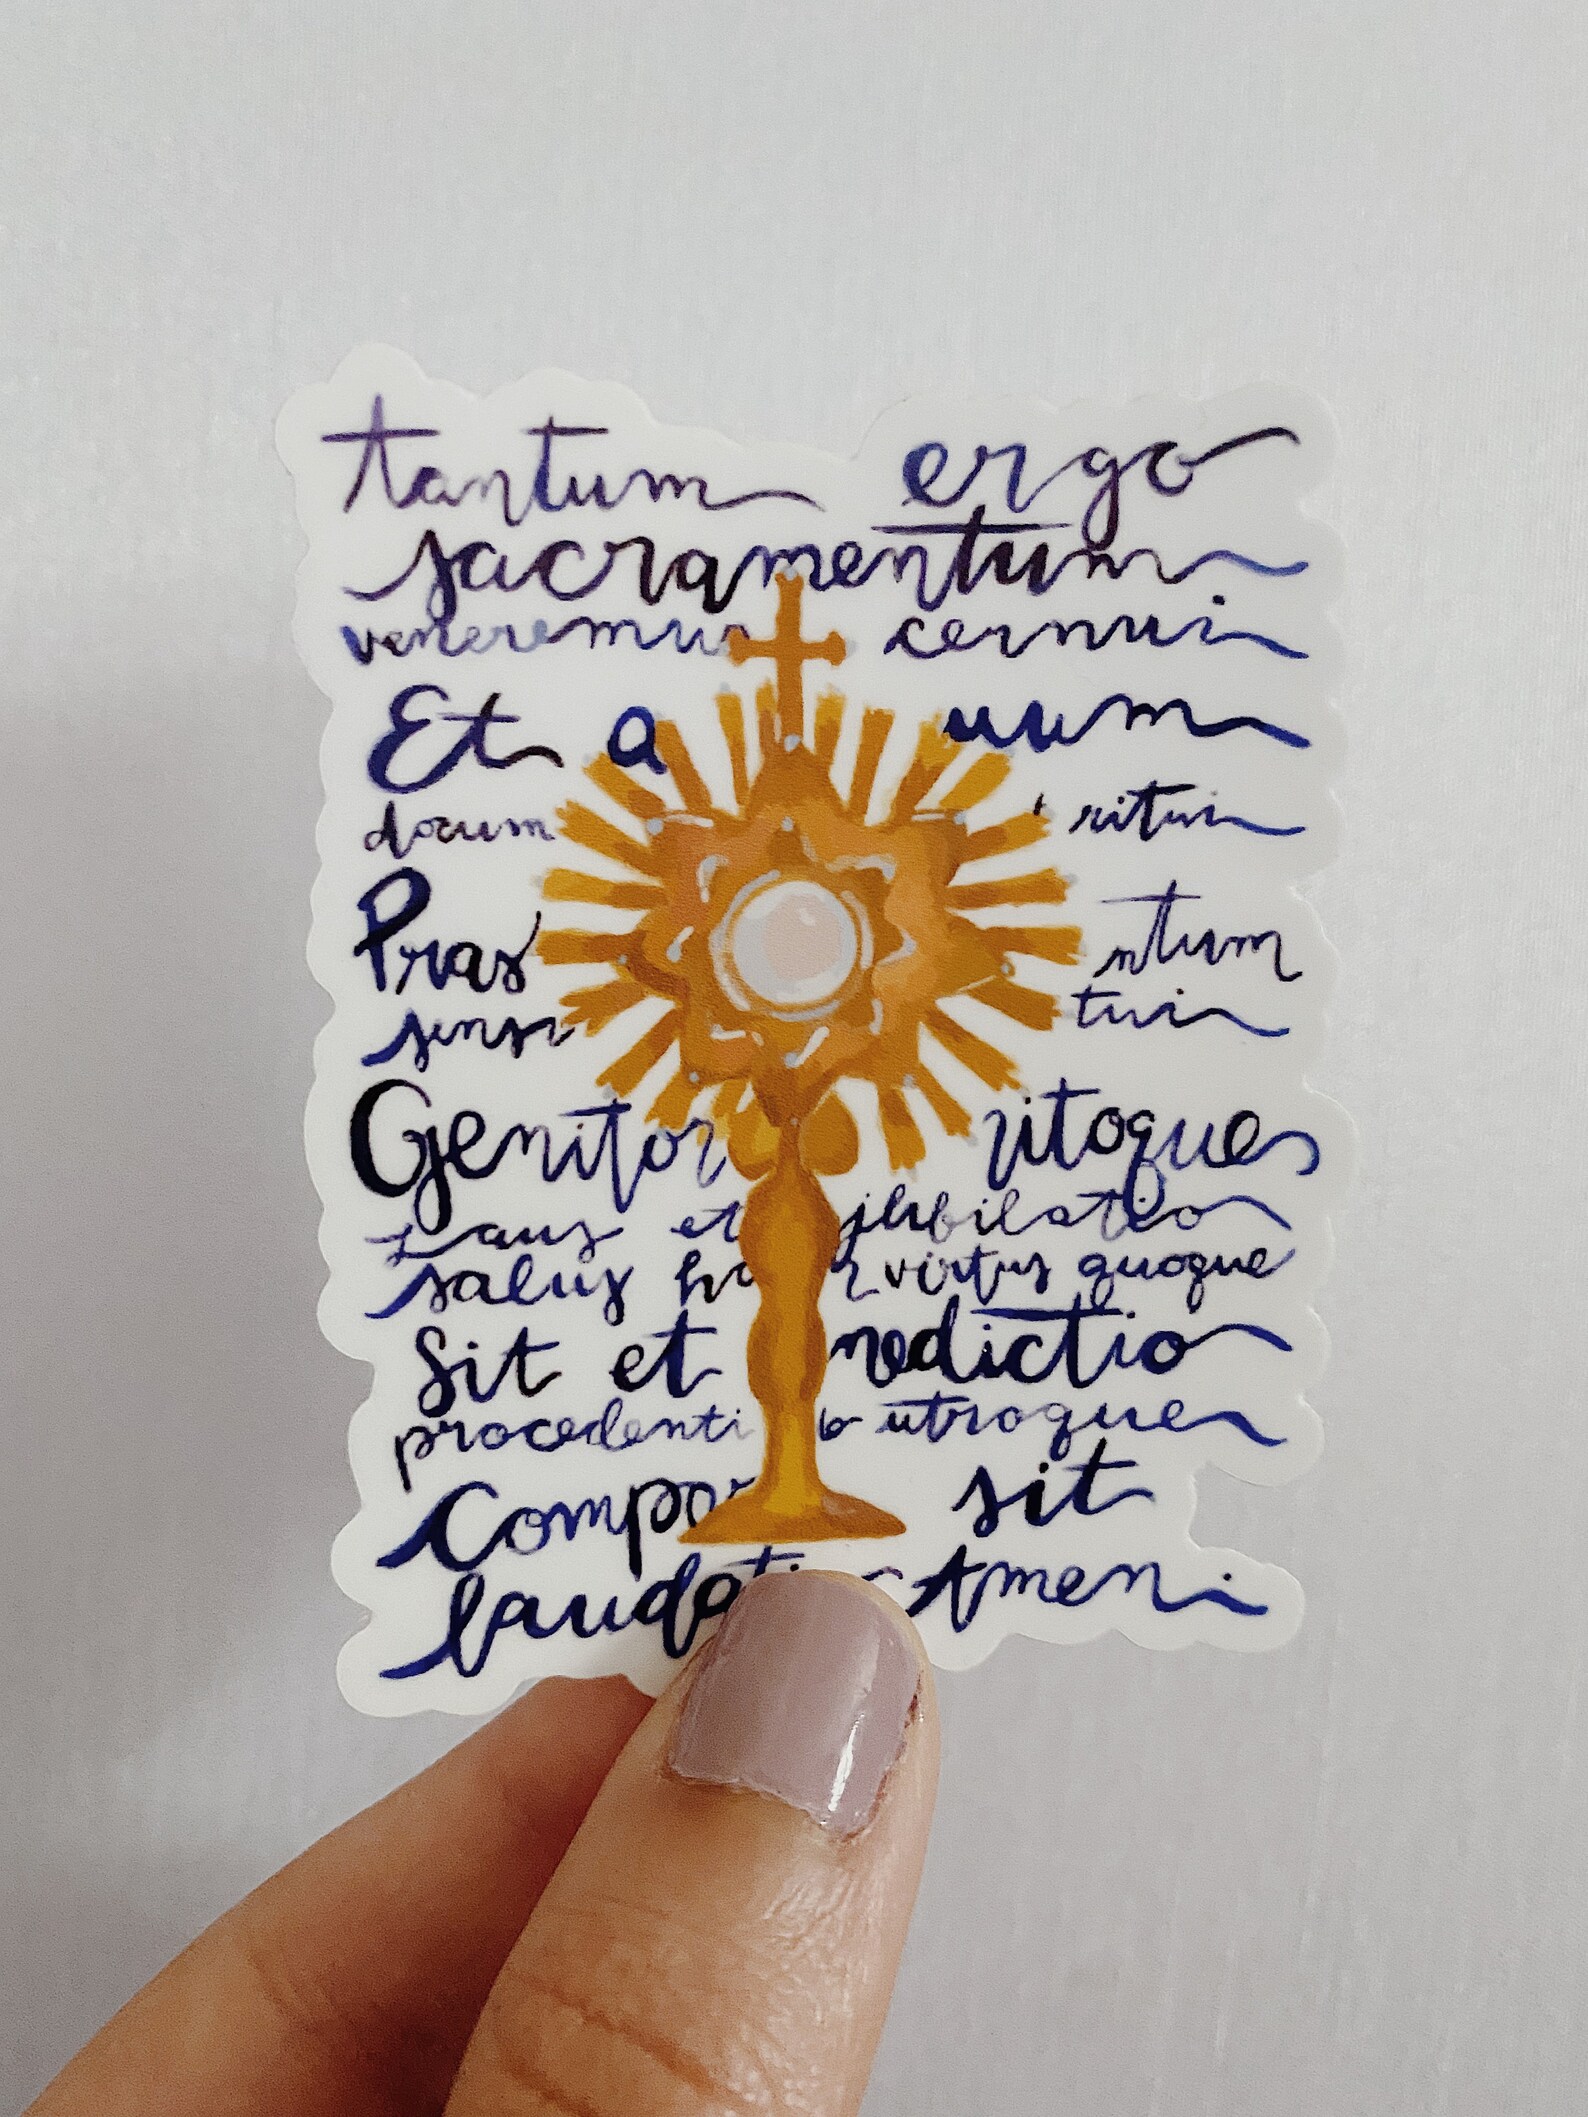 tantum ergo
sacramentum
veneremur cernui
Et a uum
docum ritui
Pras ntum
sensu tui
Genitor ritoque
Laus et jubilatio
salus ho r virtus quoque
Sit et nedictio
procedenti b utroque
Compar sit
laudati Amen